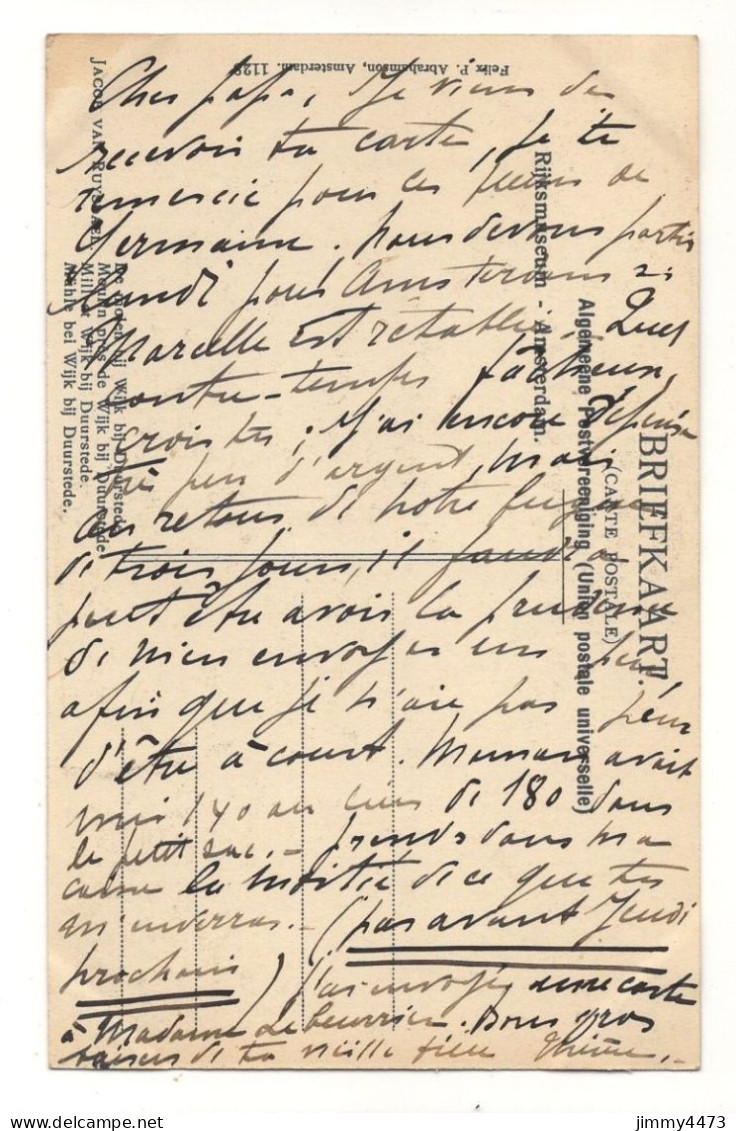 Cher papa, Je viens de
recevoir ta carte, je te
remercie pour ces fleurs de
Germaine. Nous devons partir
Lundi pour Amsterdam si
Marcelle est rétablie. Quel
contre-temps fâcheux,
crois tu ; J'ai encore dépensé
peu d'argent, mais
au retour de notre fugue
de trois jours, il faudra
peut être avoir la prudence
de m'en envoyer un peu,
afin que je n'aie pas peur
d'être à court. Maman avait
mis 140 au lieu de 180 dans
le petit sac. - prends dans ma
caisse la moitié de ce que tu
m'enverras. - (pas avant Jeudi
prochain) J'ai envoyé une carte
à Madame Bons gros
baisers de ta vieille
BRIEFKAART.
(CARTE POSTALE)
Algemeene Postvereeniging (Union postale universelle)
Rijksmuseum - Amsterdam.
Felix P. Abrahamson, Amsterdam. 112
JACOB VAN RUYSDAEL.
De molen bij Wijk bij Duurstede.
Moulin près de Wijk bij Duurstede.
Mill at Wijk bij Duurstede.
Mühle bei Wijk bij Duurstede.
jimmy4473